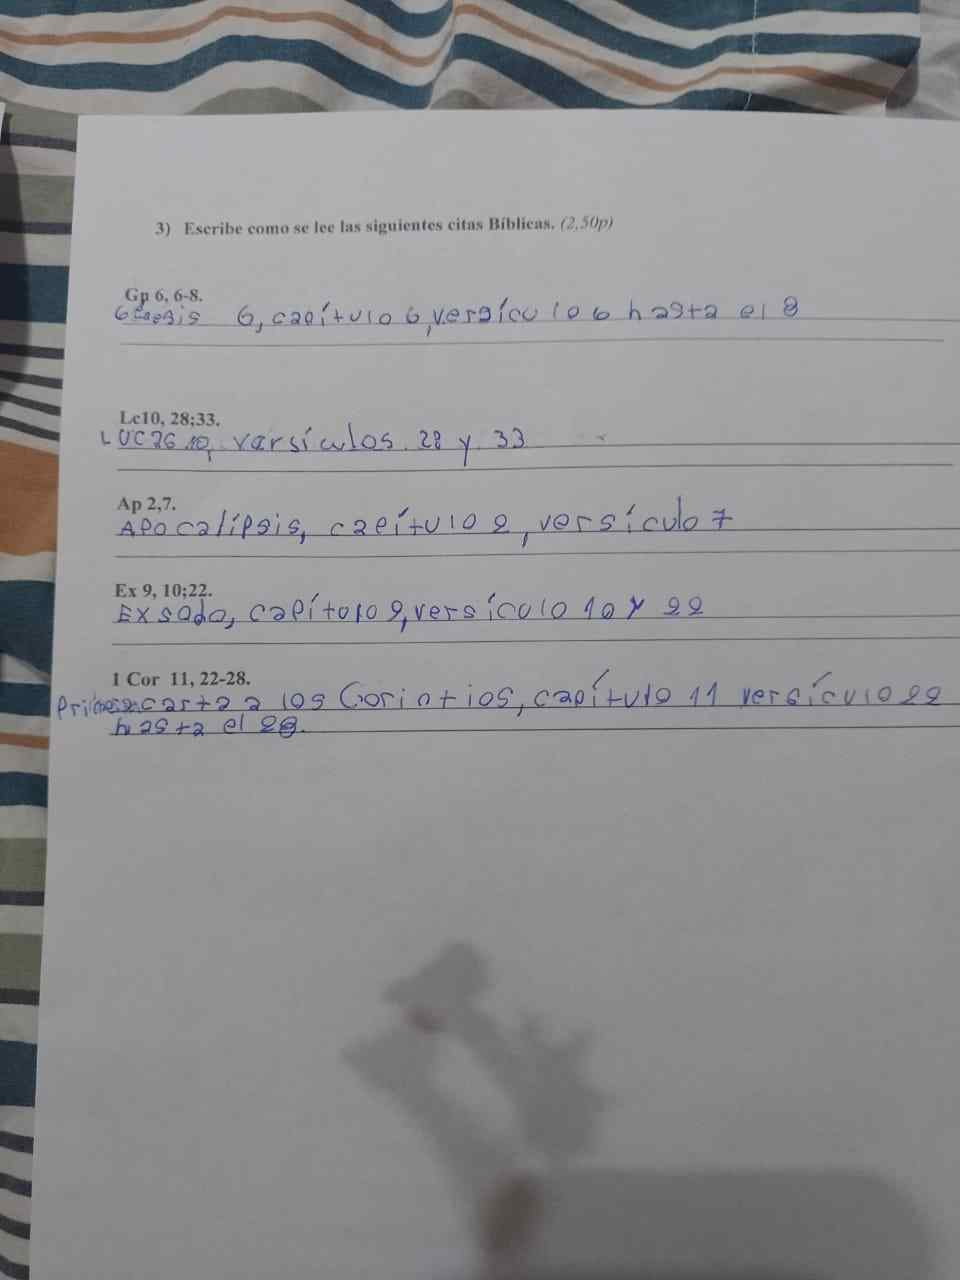 3) Escribe como se lee las siguientes citas Bíblicas. (2,50p)
Gn 6, 6-8.
6, capítulo 6, versículo 6 hasta el 8
Lc10, 28;33.
Lucas 10, versículos 28 y 33
Ap 2,7.
Apocalípsis, capítulo 2, versículo 7
Ex 9, 10;22.
Exsodo, capítulo 9, versículo 10 y 22
1 Cor 11, 22-28.
Primera carta a los Corintios, capítulo 11 versículo 22
hasta el 28.